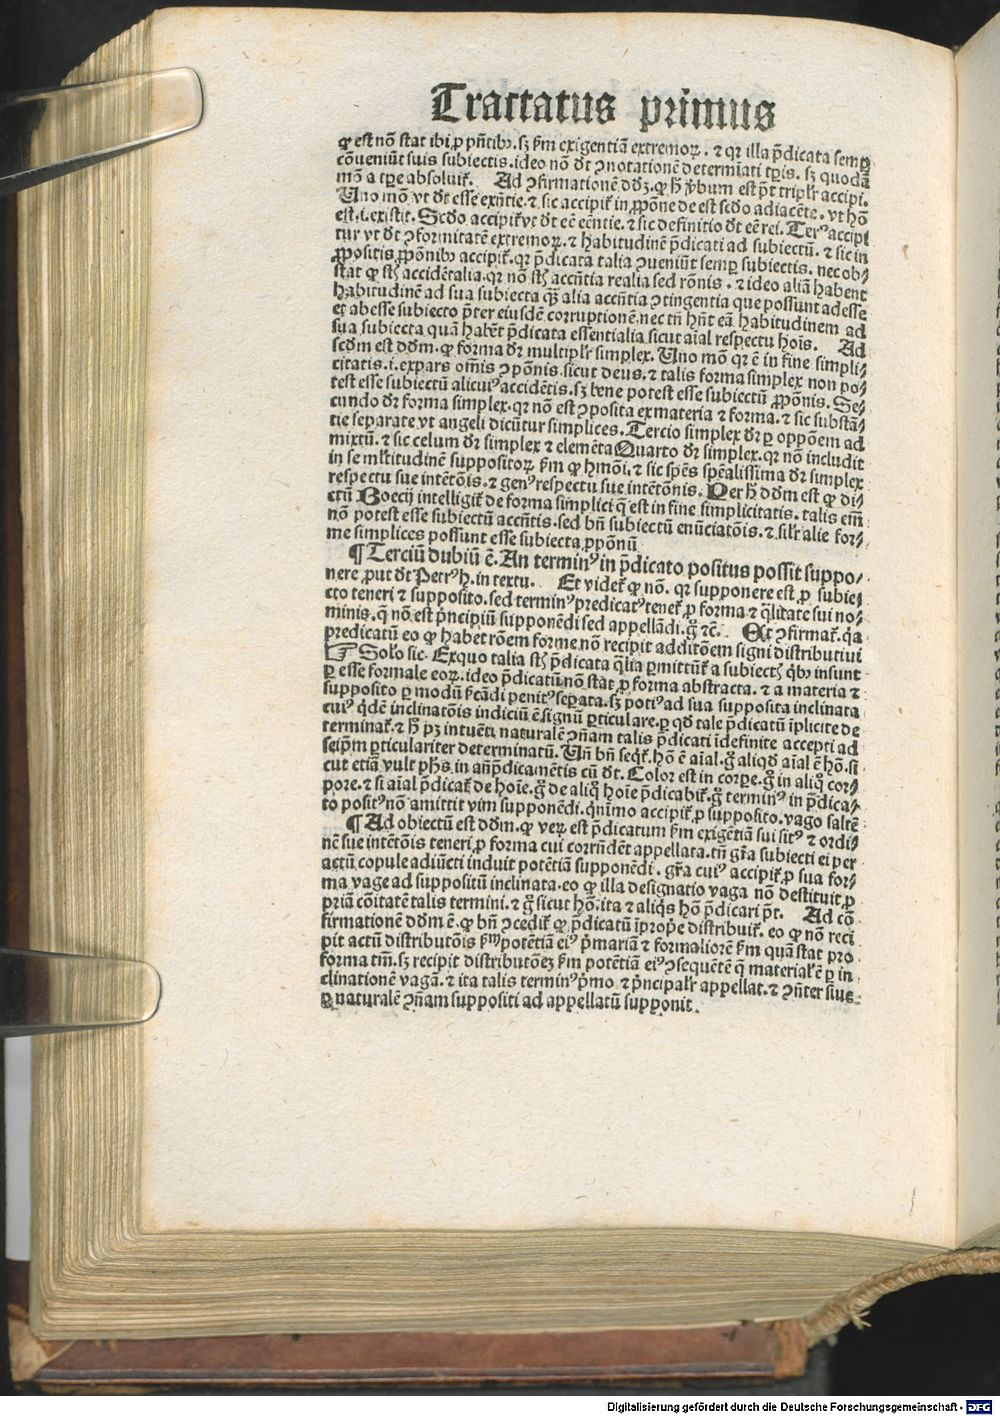 Tractatus primus
ꝙ est nō stat ibi ꝓ pn̄tibꝰ. sꝫ ẜm exigentiā extremoꝝ. ⁊ qꝛ illa p̄dicata semꝑ
cōueniūt suis subiectis. ideo nō dt̄ ꝯnotationē determīati tꝑis. sꝫ quodā
mō a tꝑe absoluit᷑. Ad ꝯfirmationē dōꝫ. ꝙ h̄ v̄bum est pōt triplr̄ accipi.
Uno mō vt dt̄ esse exn̄tie. ⁊ sic accipit᷑ in ꝓpōne de est scdo adiacēte. vt hō
est .i. existit. Scdo accipit᷑ vt dt̄ eē eēntie. ⁊ sic definitio dt̄ eē rei. Terꝰ accipi
tur vt dt̄ ꝯformitatē extremoꝝ. ⁊ habitudinē p̄dicati ad subiectū. ⁊ sic in
ꝓpositis ꝓpōnibꝰ accipit᷑. qꝛ p̄dicata talia ꝯueniūt semꝑ subiectis. nec ob⸗
stat ꝙ st̄ accidētalia. qꝛ nō st̄ accn̄tia realia sed rōnis. ⁊ ideo aliā habent
habitudinē ad sua subiecta qᷓꝫ alia accn̄tia ꝯtingentia que possunt adesse
et abesse subiecto p̄ter eiusdē corruptionē. nec tn̄ hn̄t eā habitudinem ad
sua subiecta quā habēt p̄dicata essentialia sicut aīal respectu hoīs. Ad
scdm est dōm. ꝙ forma dr̄ multiplr̄ simplex. Uno mō qꝛ ē in fine simpli⸗
citatis .i. expars om̄is ꝯpōnis. sicut deus. ⁊ talis forma simplex non po⸗
test esse subiectū alicuiꝰ accidētis. sꝫ bene potest esse subiectū ꝓpōnis. Se⸗
cundo dr̄ forma simplex. qꝛ nō est ꝯposita ex materia ⁊ forma. ⁊ sic substā⸗
tie separate vt angeli dicūtur simplices. Tercio simplex dr̄ ꝑ oppōem ad
mixtū. ⁊ sic celum dr̄ simplex ⁊ elemēta Quarto dr̄ simplex. qꝛ nō includit
in se ml̄titudinē suppositoꝝ ẜm ꝙ hmōi. ⁊ sic spēs spēalissima dr̄ simplex
respectu sue intētōis. ⁊ genꝰ respectu sue intētōnis. Per h̄ dōm est ꝙ di⸗
ctū Boecij intelligit᷑ de forma simplici q̄ est in fine simplicitatis. talis em̄
nō potest esse subiectū accn̄tis. sed bn̄ subiectū enūciatōis. ⁊ silr̄ alie for⸗
me simplices possunt esse subiecta ꝓpōnū
¶ Terciū dubiū ē. An terminꝰ in p̄dicato positus possit suppo⸗
nere ꝓut dt̄ Petrꝰ h̄. in textu. Et videt᷑ ꝙ nō. qꝛ supponere est ꝓ subie⸗
cto teneri ⁊ supposito. sed terminꝰ predicatꝰ tenet᷑ ꝓ forma ⁊ q̄litate sui no⸗
minis. q̄ nō est pͥncipiū supponēdi sed appellādi. gͦ ⁊c̄. Et ꝯfirmat᷑. qꝛ
predicatū eo ꝙ habet rōem forme nō recipit additōem signi distributiui
☞ Solꝰo sic. Exquo talia st̄ p̄dicata q̄lia ꝑmittūt᷑ a subiect̄ qͥbꝰ insunt
ꝑ esse formale eoꝝ. ideo p̄dicatū nō stat ꝓ forma abstracta. ⁊ a materia ⁊
supposito ꝑ modū ẜcādi penitꝰ seꝑata. sꝫ potiꝰ ad sua supposita inclinata
cuiꝰ qͥdē inclinatōis indiciū ē signū ꝑticulare. ꝑ qd̄ tale p̄dicatū īplicite de
terminat᷑. ⁊ h̄ pꝫ intuēti naturalē ꝯn̄am talis p̄dicati īdefinite accepti ad
seip̄m ꝑticulariter determinatū. Un̄ bn̄ seqͥt᷑. hō ē aīal. gͦ aliqd̄ aīal ē hō. si
cut etiā vult ph̄s in an̄p̄dicamētis cū dt̄. Color est in corꝑe. gͦ in aliqͦ cor⸗
pore. ⁊ si aīal p̄dicat᷑ de hoīe. gͦ de aliqͦ hoīe p̄dicabit᷑. gͦ terminꝰ in p̄dica⸗
to positꝰ nō amittit vim supponēdi. qn̄īmo accipit᷑ ꝓ supposito vago saltē
¶ Ad obiectū est dōm. ꝙ veꝝ est p̄dicatum ẜm exigētiā sui sitꝰ ⁊ ordi⸗
nē sue intētōis teneri ꝓ forma cui corrn̄dēt appellata. tn̄ gr̄a subiecti ei per
actū copule adiūcti induit potētiā supponēdi. gr̄a cuiꝰ accipit᷑ ꝓ sua for⸗
ma vage ad suppositū inclinata. eo ꝙ illa designatio vaga nō destituit ꝓ
pͥā cōitatē talis termini. ⁊ gͦ sicut hō. ita ⁊ aliqͥs hō p̄dicari pōt. Ad cō
firmationē dōm ē. ꝙ bn̄ ꝯcedit᷑ ꝙ p̄dicatū īprop̄e distribuit᷑. eo ꝙ nō reci
pit actū distributōis ẜm potētiā eiꝰ pͥmariā ⁊ formaliorē ẜm quā stat pro
forma tm̄. sꝫ recipit distributōeꝫ ẜm potētiā eiꝰ ꝯsequētē q̄ materialr̄ ē ꝑ in
clinationē vagā. ⁊ ita talis terminꝰ pͥmo ⁊ pͥncipalr̄ appellat. ⁊ ꝯn̄ter siue
ꝑ naturalē ꝯn̄am suppositi ad appellatū supponit.
Digitalisierung gefördert durch die Deutsche Forschungsgemeinschaft - DFG